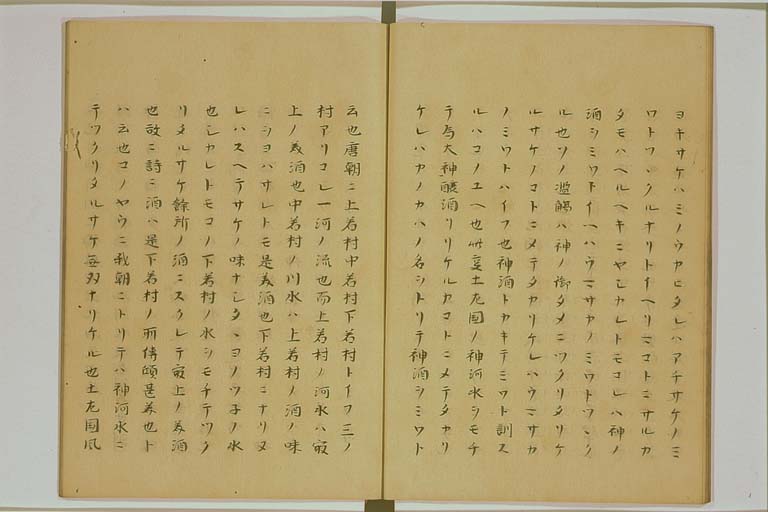 ヨキサケハミノウカヒタレハアチサケノミ
ワトツヽクルナリトイヘリマコトニサルカ
タモハヘルヘキニヤシカレトモコレハ神ノ
酒ヲミワトイヘハウマサケノミワトツヽク
ル也ソノ濫觴ハ神ノ御タメニツクリタリケ
ルサケノコトニメテタカリケレハウマサカ
ノミワトハイフ也神酒トカキテミワト訓ス
ルハコノユヘ也此夏土左國ノ神河水ヲモチ
テ為大神醸酒リケルカコトニメテタカリ
ケレハカノカハノ名ヲトリテ神酒ヲミワト
云也唐朝ニ上若村中若村下若村トイフ三ノ
村アリコレ一河ノ流也而上若村ノ河水ハ寂
上ノ美酒也中若村ノ川水ハ上若村ノ酒ノ味
ニヲヨハサレトモ是美酒也下若村ニナリヌ
レハスヘテサケノ味ナシタヽヨノツ子ノ水
也シカレトモコノ下若村ノ水ヲモチテツク
リタルサケ餘所ノ酒ニスクレテ寂上ノ美酒
也故ニ詩ニ酒ハ是下若村ノ所傳頗是美也ト
ハ云也コノヤウニ我朝ニトリテハ神河水ニ
テツクリタルサケ無双ナリケル也土左國風